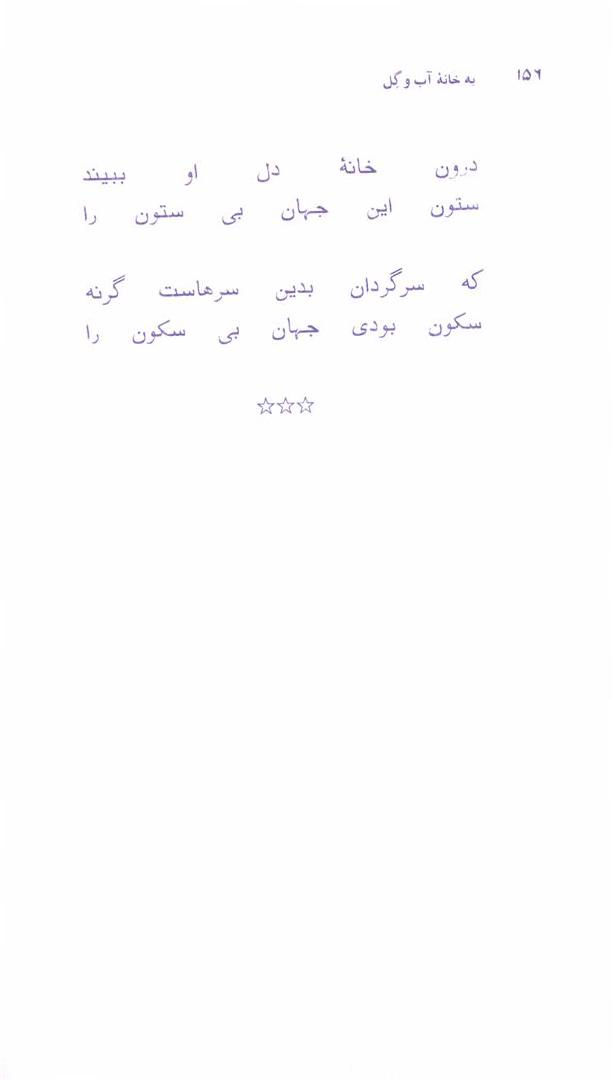 ۱۵۶ به خانهٔ آب و گِل
درون خانهٔ دل او ببیند
ستون این جهان بی ستون را
که سرگردان بدین سرهاست گرنه
سکون بودی جهان بی سکون را
☆☆☆